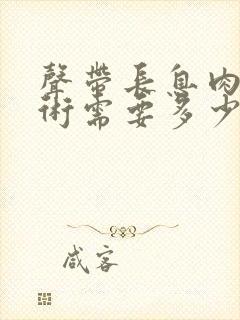 聲帶長息肉
術需要多少
咸客